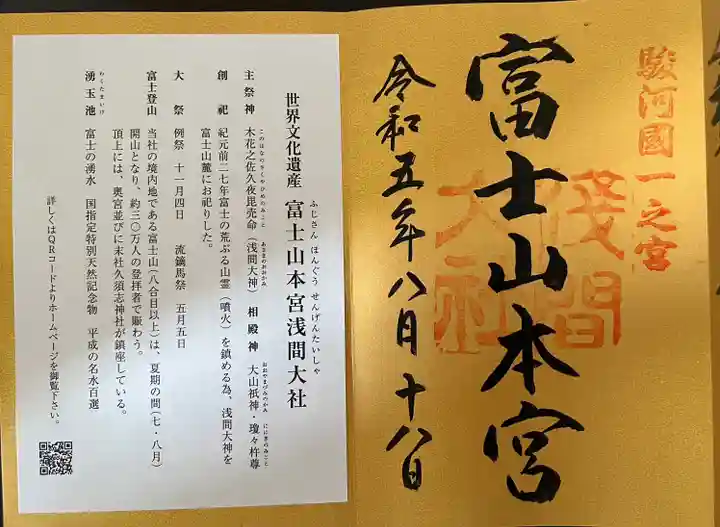 駿河國一之宮
富士山本宮
淺間
大社
令和五年八月十八日
世界文化遺産 富士山本宮浅間大社
ふじさん ほんぐう せんげんたいしゃ
主祭神 木花之佐久夜毘売命(浅間大神) 相殿神 大山祇神・瓊々杵尊
このはなのさくやひめのみこと あさまのおおかみ おおやまづみのかみ ににぎのみこと
創祀 紀元前二七年富士の荒ぶる山霊(噴火)を鎮める為、浅間大神を
富士山麓にお祀りした。
大祭 例祭 十一月四日 流鏑馬祭 五月五日
富士登山 当社の境内地である富士山(八合目以上)は、夏期の間(七・八月)
開山となり、約三〇万人の登拝者で賑わう。
頂上には、奥宮並びに末社久須志神社が鎮座している。
湧玉池 富士の湧水 国指定特別天然記念物 平成の名水百選
わくたまいけ
詳しくはQRコードよりホームページを御覧下さい。